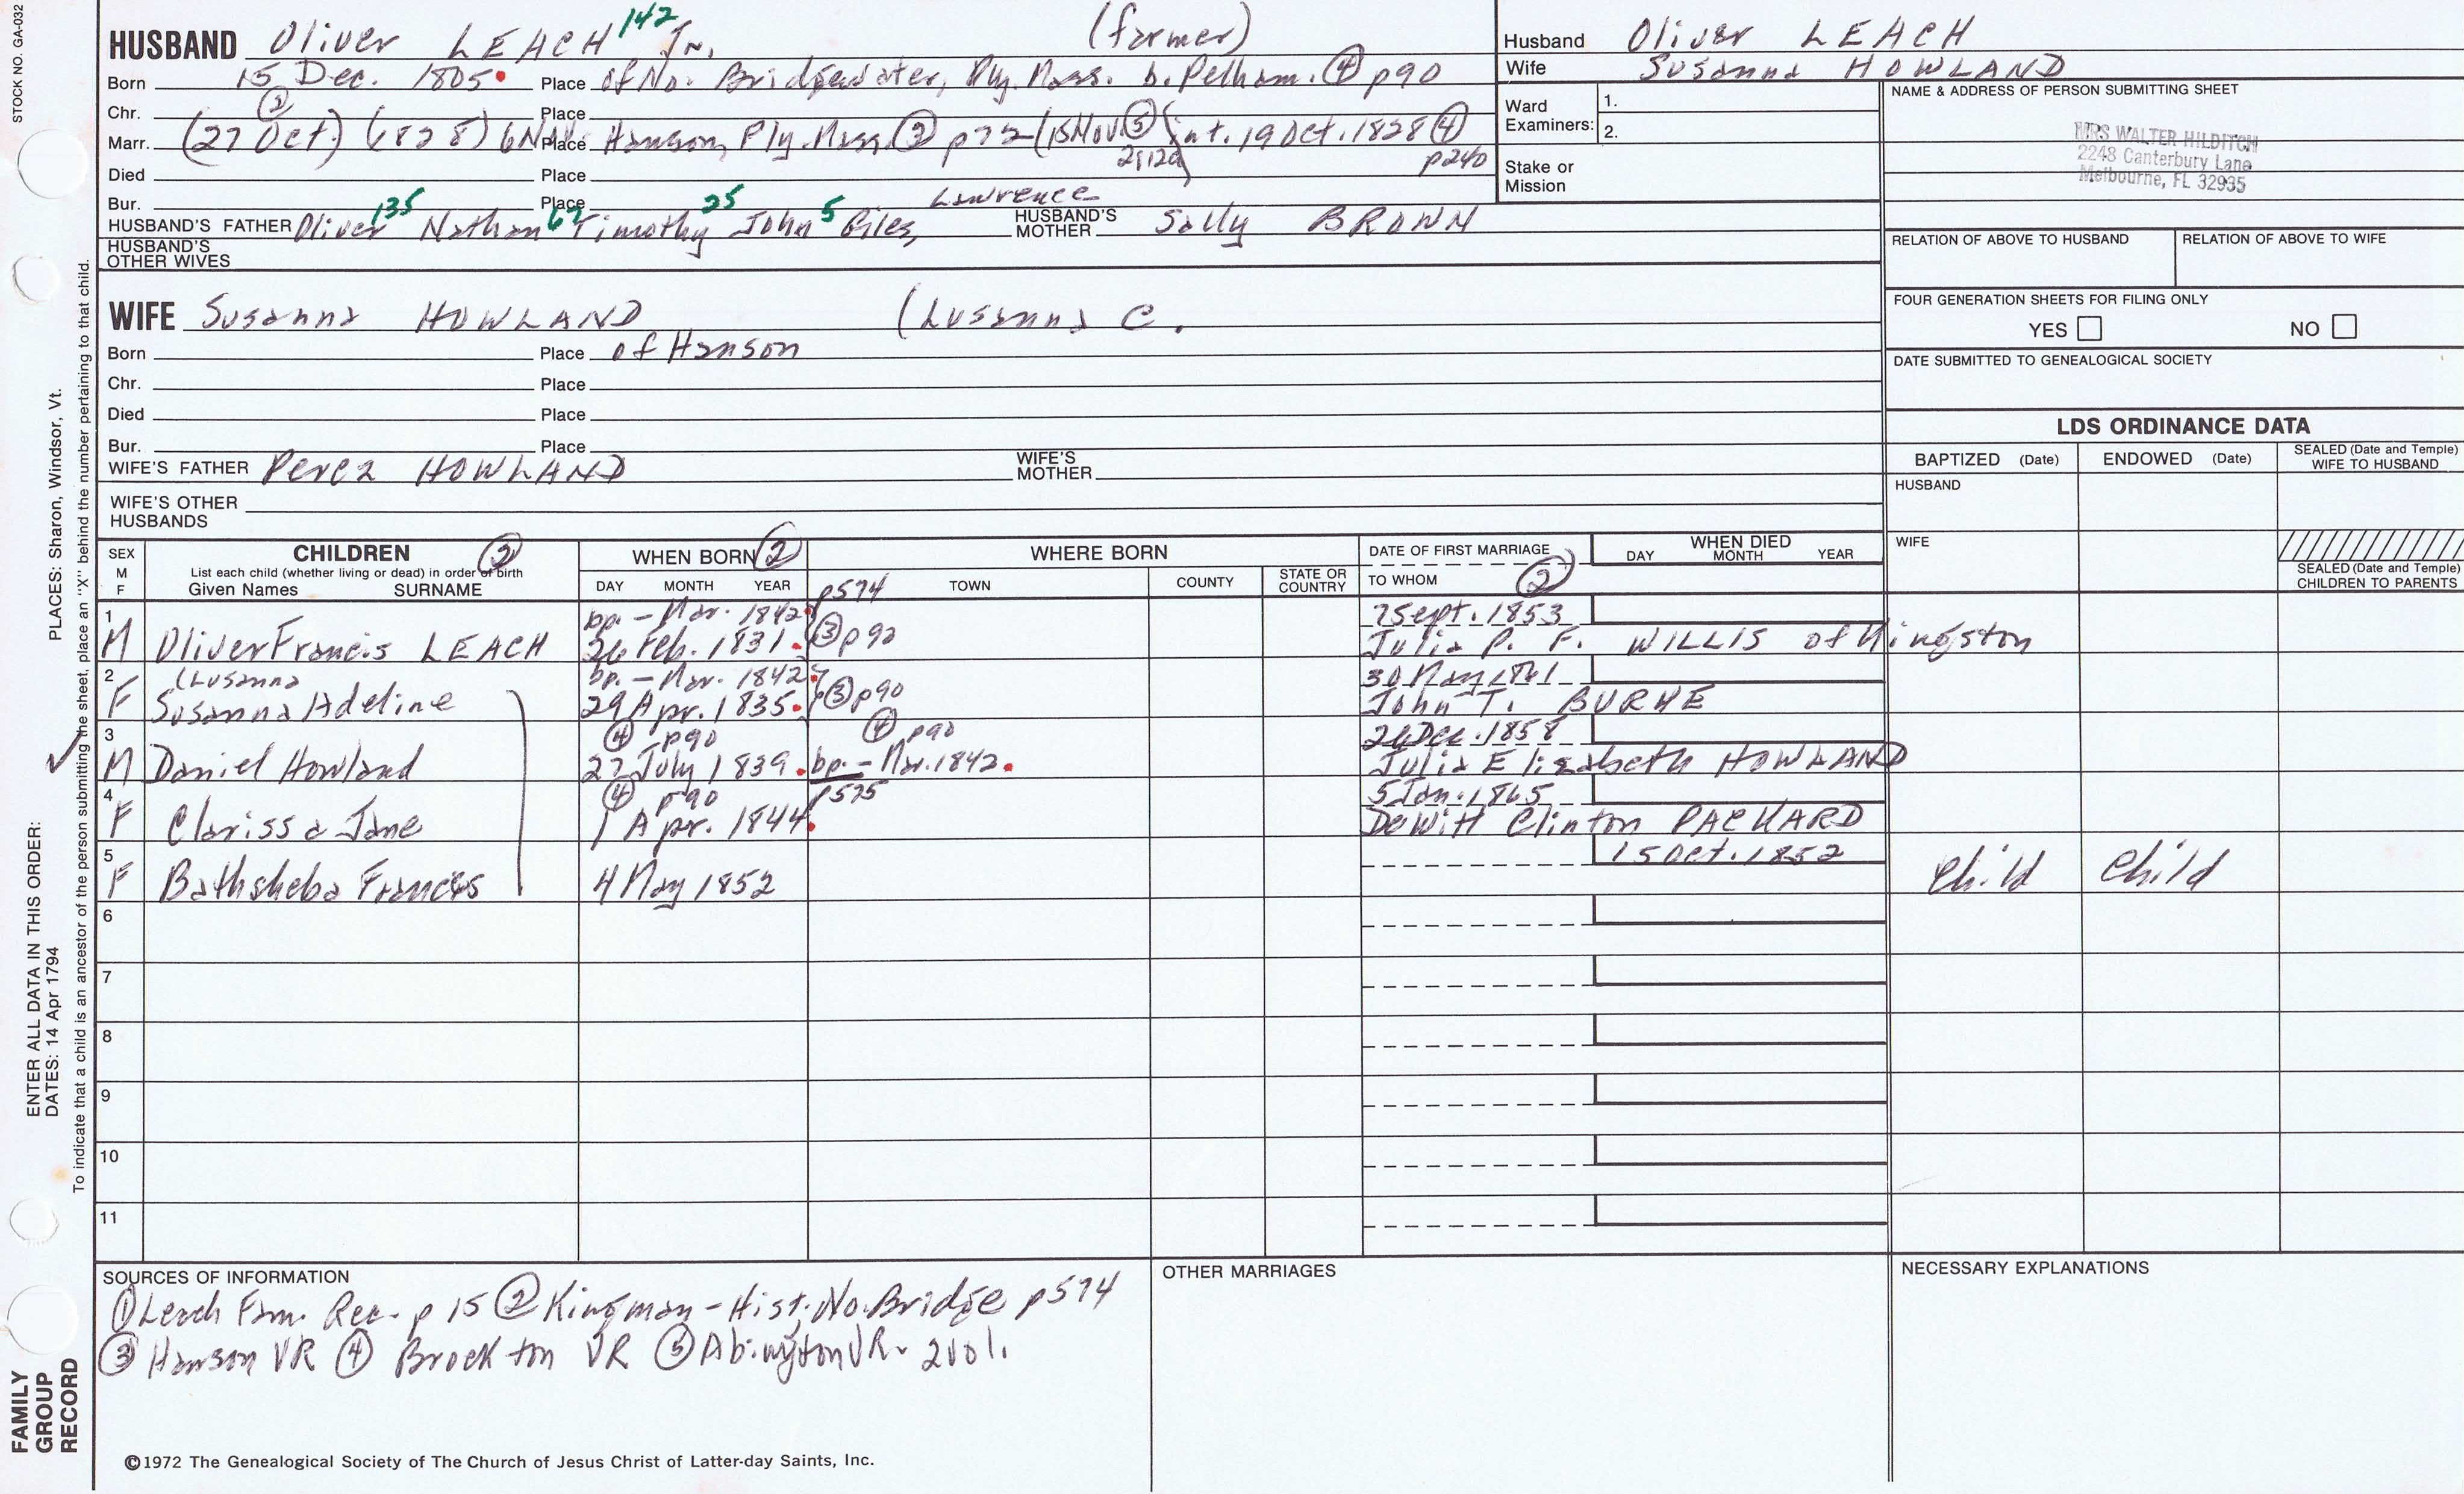 STOCK NO. GA-032
HUSBAND Oliver LEACH 142 Jr. (farmer)
Born 15 Dec. 1805 Place of No. Bridgewater, Ply. Mass. b. Pelham. ④ p90
Chr. ② Place
Marr. (27 Oct) (1828) 6 Nov. Place Hanson, Ply. Mass. ③ p72 (15 Nov. ⑤ int. 19 Oct. 1828 ④
p240
Died Place
Bur. Place
HUSBAND'S FATHER Oliver 135 Nathan 67 Timothy 25 John 5 Giles, Lawrence HUSBAND'S MOTHER Sally BROWN
HUSBAND'S OTHER WIVES
WIFE Susanna HOWLAND (Lusanna C.
Born Place of Hanson
Chr. Place
Died Place
Bur. Place
WIFE'S FATHER Perez HOWLAND WIFE'S MOTHER
WIFE'S OTHER HUSBANDS
Husband Oliver LEACH
Wife Susanna HOWLAND
Ward Examiners: 1.
2.
Stake or Mission
NAME & ADDRESS OF PERSON SUBMITTING SHEET
MRS WALTER HILDITCH
2248 Canterbury Lane
Melbourne, FL 32935
RELATION OF ABOVE TO HUSBAND RELATION OF ABOVE TO WIFE
FOUR GENERATION SHEETS FOR FILING ONLY
YES NO
DATE SUBMITTED TO GENEALOGICAL SOCIETY
LDS ORDINANCE DATA
BAPTIZED (Date) ENDOWED (Date) SEALED (Date and Temple) WIFE TO HUSBAND
HUSBAND
WIFE
SEALED (Date and Temple) CHILDREN TO PARENTS
SEX M F
CHILDREN ②
List each child (whether living or dead) in order of birth
Given Names SURNAME
WHEN BORN ②
DAY MONTH YEAR
WHERE BORN
TOWN COUNTY STATE OR COUNTRY
DATE OF FIRST MARRIAGE
TO WHOM ②
WHEN DIED
DAY MONTH YEAR
1 bp. - Mar. 1842 p574 7 Sept. 1853
M Oliver Francis LEACH 26 Feb. 1831 ③ p92 Julia P. F. WILLIS of Kingston
2 (Lusanna bp. - Mar. 1842 30 May 1861
F Susanna Adeline 29 Apr. 1835 ③ p90 John T. BURKE
3 ④ p90 ④ p90 Dec. 1858
M Daniel Howland 27 July 1839 bp. - Mar. 1842 Julia Elizabeth HOWLAND
4 ④ p90 p575 5 Jan. 1865
F Clarissa Jane 1 Apr. 1844 DeWitt Clinton PACKARD
5 15 Oct. 1852
F Bathsheba Frances 4 May 1852 Child Child
6
7
8
9
10
11
SOURCES OF INFORMATION
① Leach Fam. Rec. p 15 ② Kingman - Hist. No. Bridge p574
③ Hanson VR ④ Brockton VR ⑤ Abington VR. 2 vol.
OTHER MARRIAGES
NECESSARY EXPLANATIONS
©1972 The Genealogical Society of The Church of Jesus Christ of Latter-day Saints, Inc.
FAMILY GROUP RECORD
ENTER ALL DATA IN THIS ORDER:
DATES: 14 Apr 1794
PLACES: Sharon, Windsor, Vt.
To indicate that a child is an ancestor of the person submitting the sheet, place an "X" behind the number pertaining to that child.